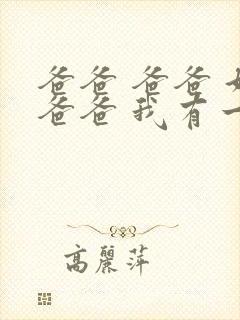 爸爸 爸爸
爸爸 我有一
高麗萍